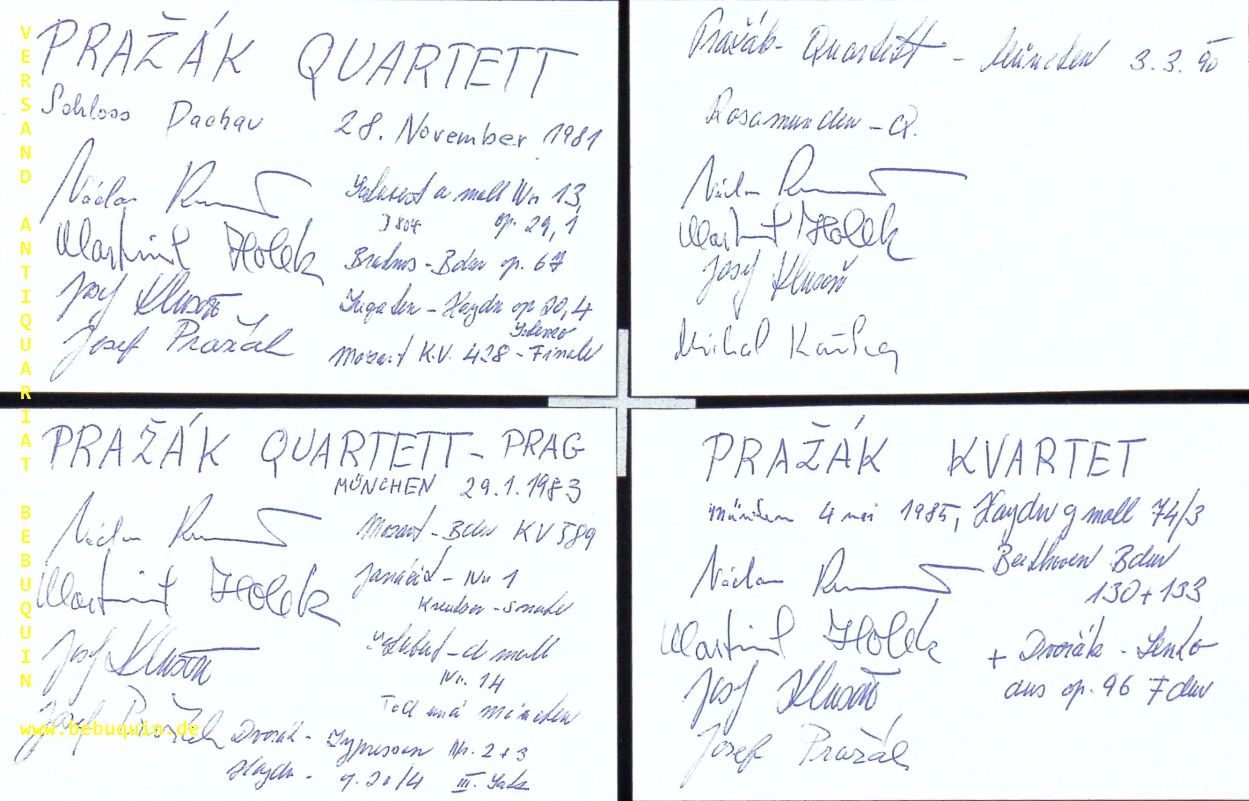 VERSAND ANTIQUARIAT BEBUQUIN
PRAŽÁK QUARTETT
Schloss Dachau 28. November 1981
Václav
Vlastimil Holek
Josef Klusoň
Josef Pražák
a moll No 13,
op. 29,1
Brahms - Bdur op. 67
Zugaben - Haydn op 20,4
Mozart K.V. 428 - Finale
Pražák - Quartett - München 3.3.90
Rosamunden - Q.
Václav
Vlastimil Holek
Josef Klusoň
Michal Kaňka
PRAŽÁK QUARTETT - PRAG
MÜNCHEN 29.1.1983
Václav
Vlastimil Holek
Josef Klusoň
Josef Pražák
Mozart - Bdur KV 589
Janáček - No 1
Kreutzer - Sonate
Schubert - d moll
No. 14
Tod und
Dvořák - Zypressen Nr. 2+3
Haydn - 20/4 III. Satz
www.bebuquin.de
PRAŽÁK KVARTET
München 4 mai 1985, Haydn g moll 74/3
Beethoven Bdur
130+133
Václav
Vlastimil Holek
Josef Klusoň
Josef Pražák
+ Dvořák -
aus op. 96 Fdur